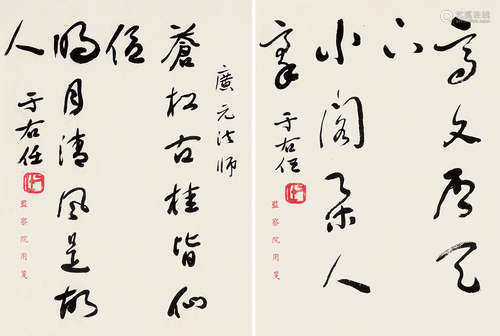 高文天
下
小閣人
豪
于右任
監察院用箋
廣元法師
蒼松古桂皆仙
侶
明月清風是故
人
于右任
監察院用箋